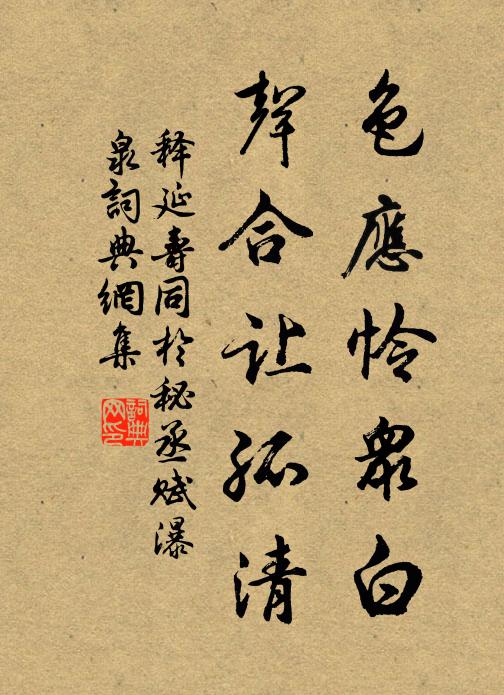 色應怜衆白
聲合让孤清
释延壽同於秘丞赋瀑
泉詞典網集
詞典网印